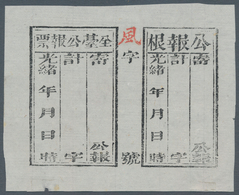 公報根
需 公報
計 字
光緒 年 月 日 時
風字 號
公報票
需 公報
計 字
光緒 年 月 日 時